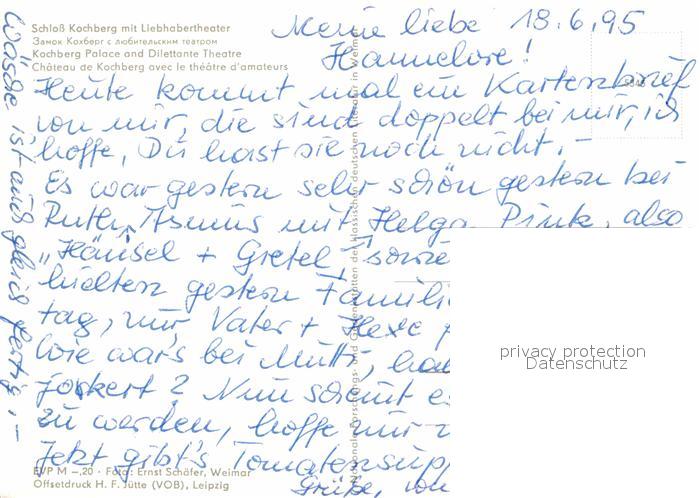 Schloß Kochberg mit Liebhabertheater
Замок Кохберг с любительским театром
Kochberg Palace and Dilettante Theatre
Château de Kochberg avec le théâtre d'amateurs
Meine liebe 18.6.95
Hannelore!
Heute kommt mal ein Kartenbrief
von mir, die sind doppelt bei mir, ich
hoffe, Du hast sie noch nicht. –
Es war gestern sehr schön gestern bei
Ruth, Asmus mit Helga Pink, also
„Hänsel + Gretel" sowie
hielten gestern Famili
tag, nur Vater + Hexe
Wie war's bei Mutti, hat
2 Nun scheint e
zu werden, hoffe nur
Jetzt gibt's Tomatensup
Grüße, von
Wäsche ist auch gleich fertig. –
EVP M –,20 · Foto: Ernst Schäfer, Weimar
Offsetdruck H. F. Jütte (VOB), Leipzig
Nationale Forschungs- und Gedenkstätten der klassischen deutschen Literatur in Weimar
privacy protection
Datenschutz